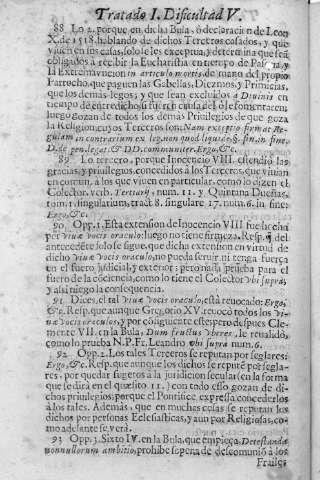 Tratado I. Dificultad V.
88 Lo 2. porque en dicha Bula, ò declaracion de Leon
X. de 1518. hablando de dichos Terceros casados, y que
viuen en sus casas, solo les exceptua, y determina que sean
obligados à recibir la Eucharistia en tiempo de Pascua, y
la Extremavncion in articulo mortis, de mano del propio
Parrocho, que paguen las Gabelas, Diezmos, y Primicias,
que los demàs legos; y que sean excluidos à Diuinis en
tiempo de entredicho, si fueren causa dèl, ò le fomentaren;
luego gozan de todos los demàs Priuilegios de que goza
la Religion, cuyos Terceros son: Nam exceptio firmat Re-
gulam in contrarium ex legum quod liquide. §. fin. in fine,
D. de pen. legat. & DD. communiter. Ergo, &c.
89 Lo tercero, porque Inocencio VIII. estendiò las
gracias, y priuilegios, concedidos à los Terceros, que viuian
en comun, à los que viuen en particular, como lo dizen el
Colector, verb. Tertiarij, num. 11. y Quintana Dueñas,
tom. 1. singularium, tract. 8. singulare 17. num. 6. in fine:
Ergo, &c.
90 Opp. 1. Esta extension de Inocencio VIII fue hecha
per viuæ vocis oraculo: luego no tiene firmeza. Resp. q̃ del
antecedẽte solo se sigue, que dicha extension en virtud de
dicho viuæ vocis oraculo, no pueda seruir, ni tenga fuerça
en el fuero judicial, y exterior: pero nada prueba para el
fuero de la cõciencia, como lo tiene el Colector vbi suprà,
y assi niego la consequencia.
91 Dices, el tal viuæ vocis oraculo, està reuocado: Ergo,
&c. Resp. que aunque Gregorio XV. reuocò todos los vi-
uæ vocis oraculos, y por cõsiguiente esse; pero despues Cle-
mente VII. en la Bula, Dum fructus vberes, le reualidò,
como lo prueba N. P. Fr. Leandro vbi supra num. 6.
92 Opp. 2. Los tales Terceros se reputan por seglares:
Ergo, &c. Resp. que aunque los dichos se reputẽ por segla-
res, por quedar sugetos à la juridicion secular (en la forma
que se dirà en el quæsito 11.) con todo esso gozan de di-
chos priuilegios, porque el Pontifice expressa concederlos
à los tales. Ademàs, que en muchas cosas se reputan los
dichos por personas Eclesiasticas, y aun por Religiosas, co-
mo adelante se verà.
93 Opp. 3. Sixto IV. en la Bula, que empieça, Detestanda
nonnullorum ambitio, prohibe so pena de descomuniõ à los
Frailes